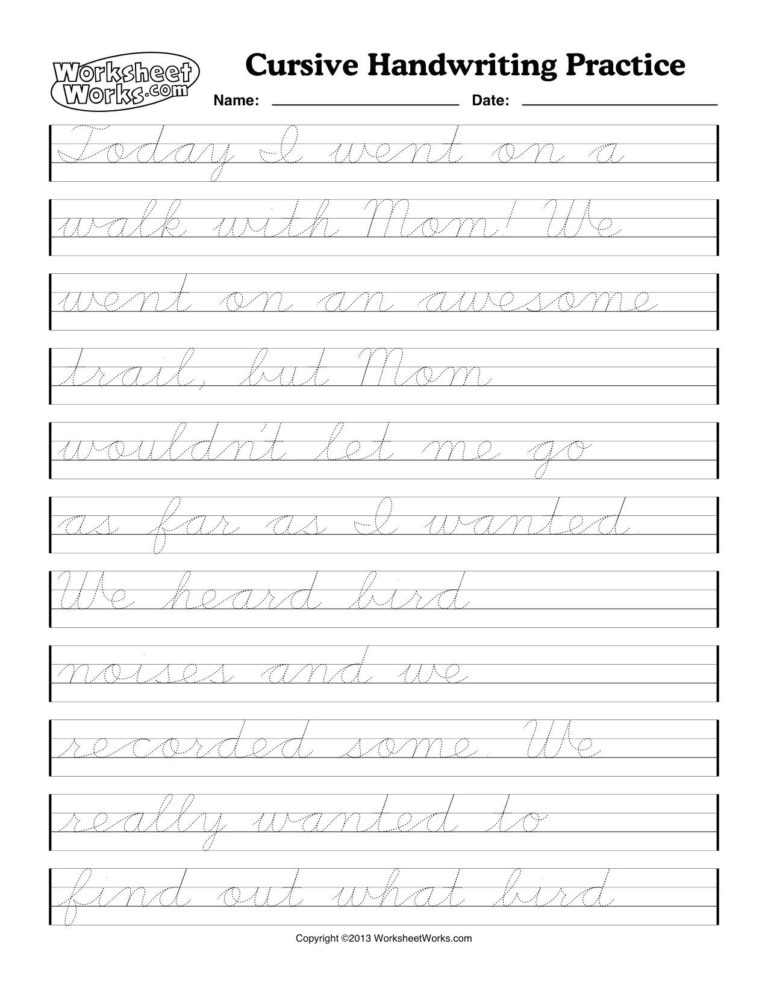 Worksheet
Works.com
Cursive Handwriting Practice
Name: Date:
Today I went on a
walk with Mom! We
went on an awesome
trail, but Mom
wouldn't let me go
as far as I wanted.
We heard bird
noises and we
recorded some. We
really wanted to
find out what bird
Copyright ©2013 WorksheetWorks.com